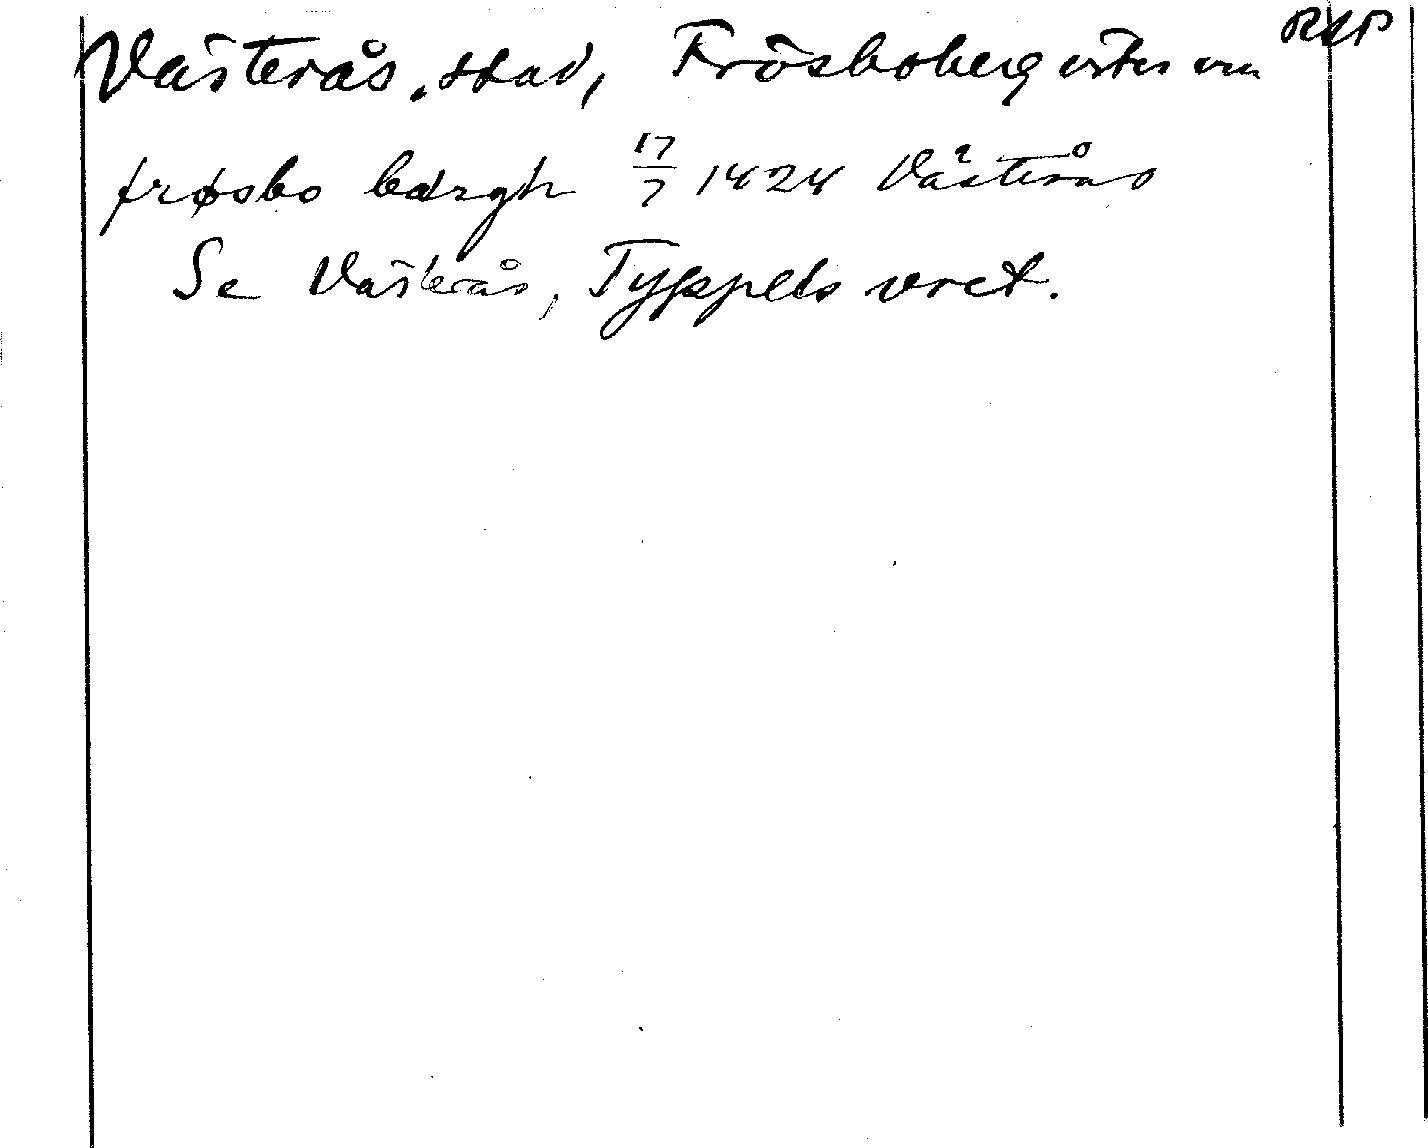 RAP
Västerås. stad, Frösboberg
frøsbo bærgh 17/7 1424 Västerås
Se Västerås, Typpels vret.